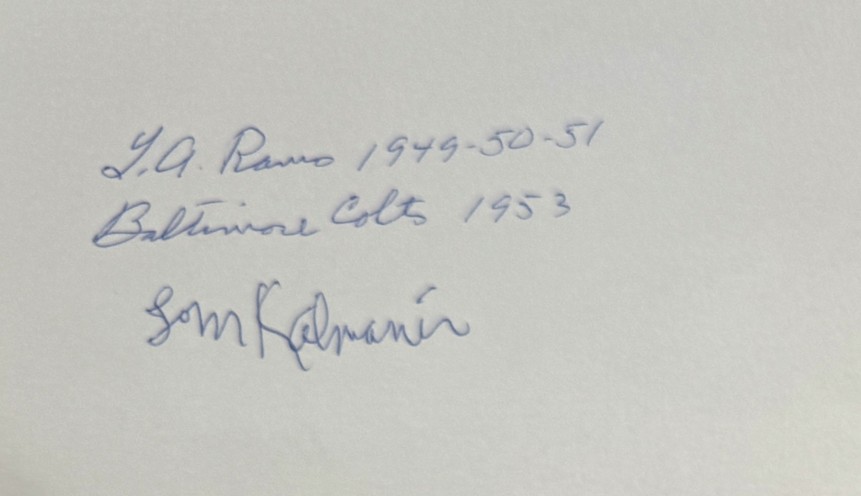 L.A. Rams 1949-50-51
Baltimore Colts 1953
Tom Kalmanir